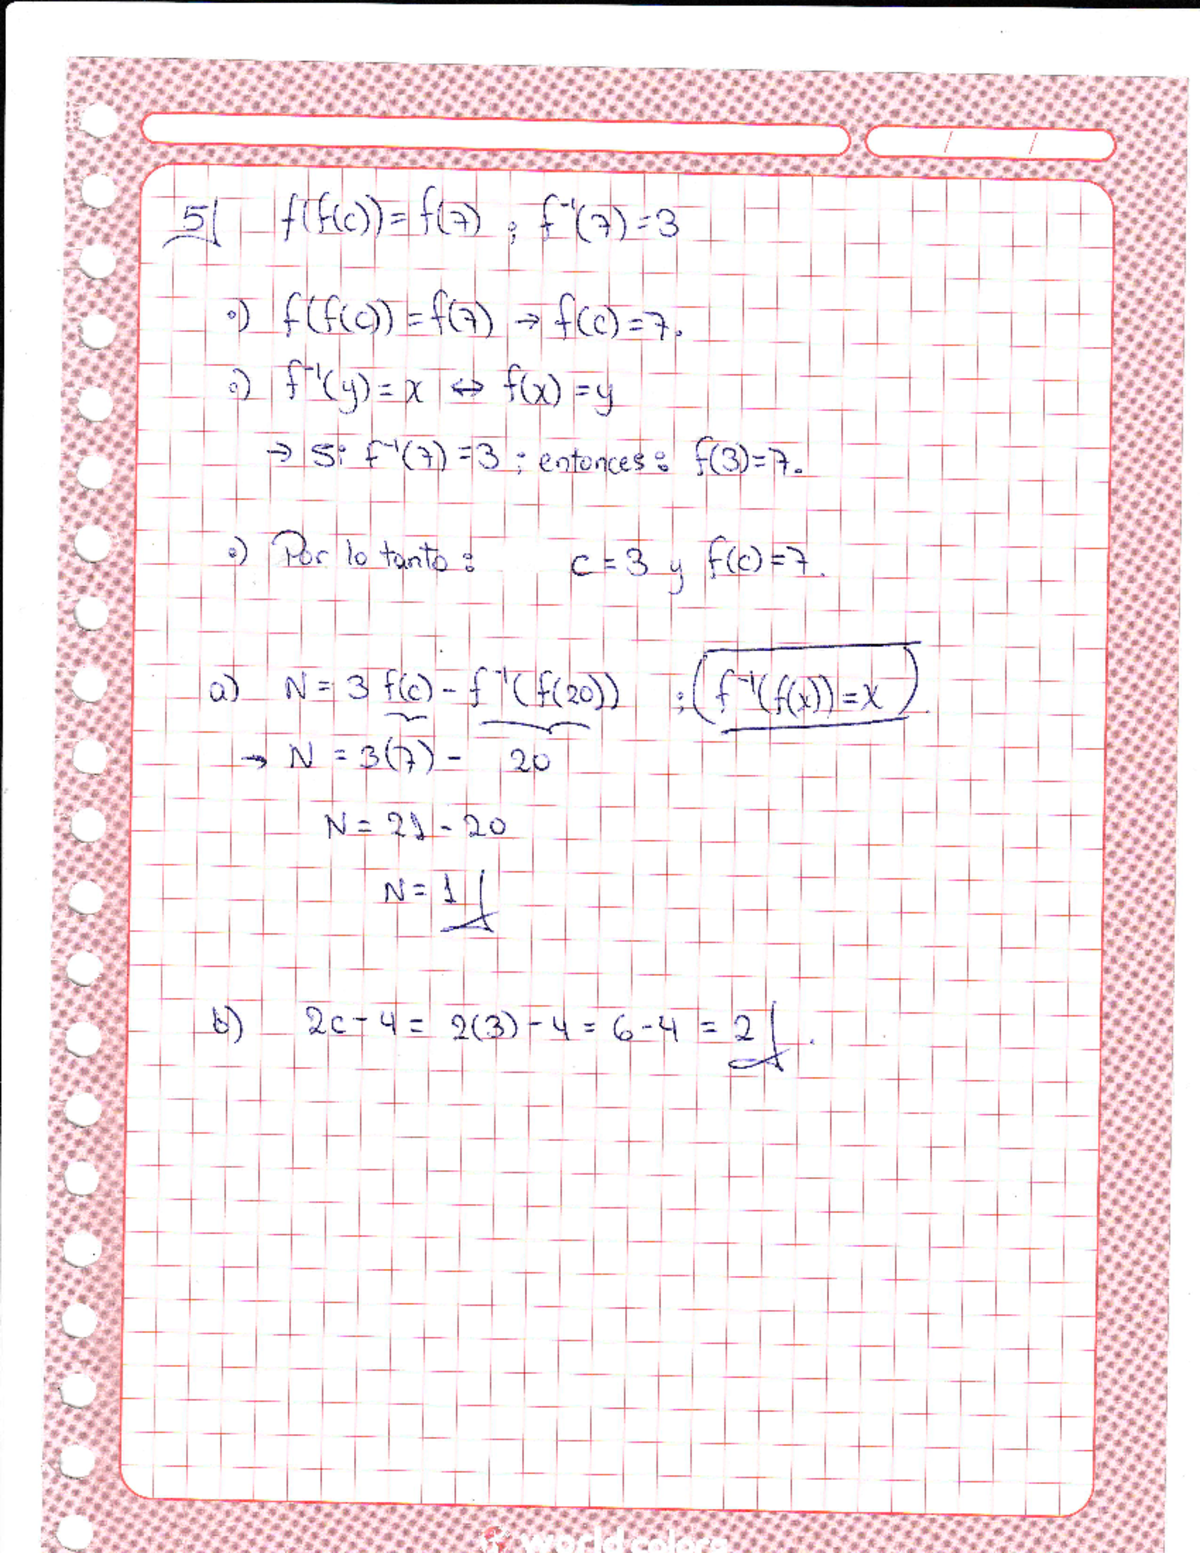 5| f(f(c)) = f(7) ; f⁻¹(7) = 3
•) f(f(c)) = f(7) → f(c) = 7.
•) f⁻¹(y) = x ↔ f(x) = y
→ Si f⁻¹(7) = 3 ; entonces : f(3) = 7.
•) Por lo tanto : c = 3 y f(c) = 7.
a) N = 3 f(c) - f⁻¹(f(20)) ; (f⁻¹(f(x)) = x)
→ N = 3(7) - 20
N = 21 - 20
N = 1
b) 2c - 4 = 2(3) - 4 = 6 - 4 = 2 .
world colors